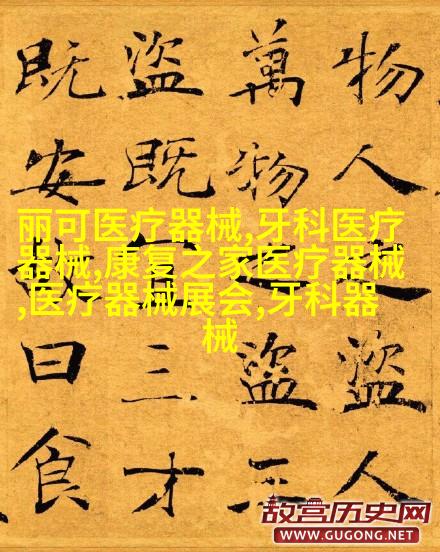 物人盜人
萬物盜三
盜既三才
既安曰食
丽可医疗器械,牙科医疗
器械,康复之家医疗器械
,医疗器械展会,牙科器
械
故宫历史网
WWW.GUGONG.NET